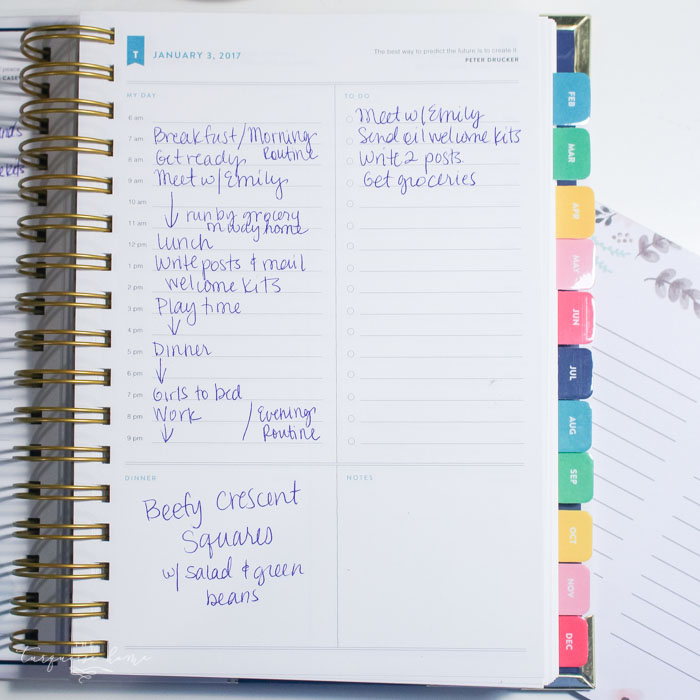 T
JANUARY 3, 2017
The best way to predict the future is to create it.
PETER DRUCKER
MY DAY
6 am
7 am Breakfast/Morning
Routine
8 am Get ready
9 am Meet w/ Emily
10 am
run by grocery
11 am on way home
12 pm Lunch
1 pm Write posts & mail
2 pm welcome kits
3 pm Play time
4 pm
5 pm Dinner
6 pm
7 pm Girls to bed
8 pm Work / Evening
Routine
9 pm
TO DO
Meet w/ Emily
Send oil welcome kits
Write 2 posts
Get groceries
DINNER
Beefy Crescent
Squares
w/ salad & green
beans
NOTES
FEB
MAR
APR
MAY
JUN
JUL
AUG
SEP
OCT
NOV
DEC
peace
CASEY
kits
THE
turquoise home